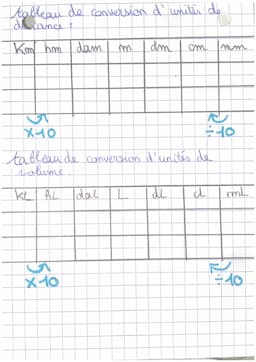 tableau de conversion d'unités de
distance :
Km hm dam m dm cm mm
×10 ÷10
tableau de conversion d'unités de
volume
KL hL daL L dL cL mL
×10 ÷10